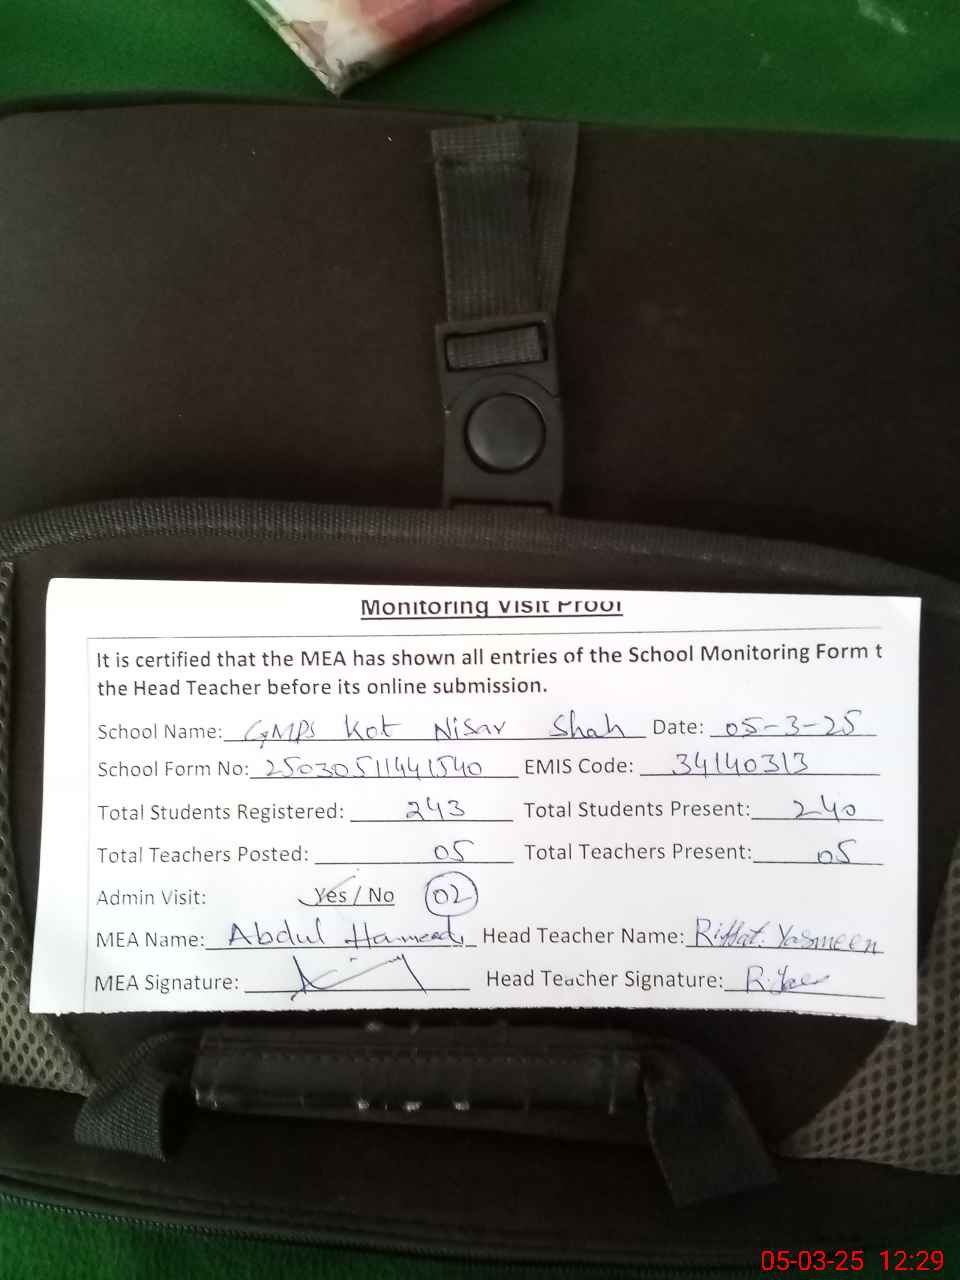 Monitoring Visit Proof
It is certified that the MEA has shown all entries of the School Monitoring Form t
the Head Teacher before its online submission.
School Name: GMPS Kot Nisar Shah Date: 05-3-25
School Form No: 25030511441540 EMIS Code: 34140313
Total Students Registered: 243 Total Students Present: 240
Total Teachers Posted: 05 Total Teachers Present: 05
Admin Visit: Yes / No 02
MEA Name: Abdul Hameed Head Teacher Name: Riffat Yasmeen
MEA Signature: Head Teacher Signature:
05-03-25 12:29